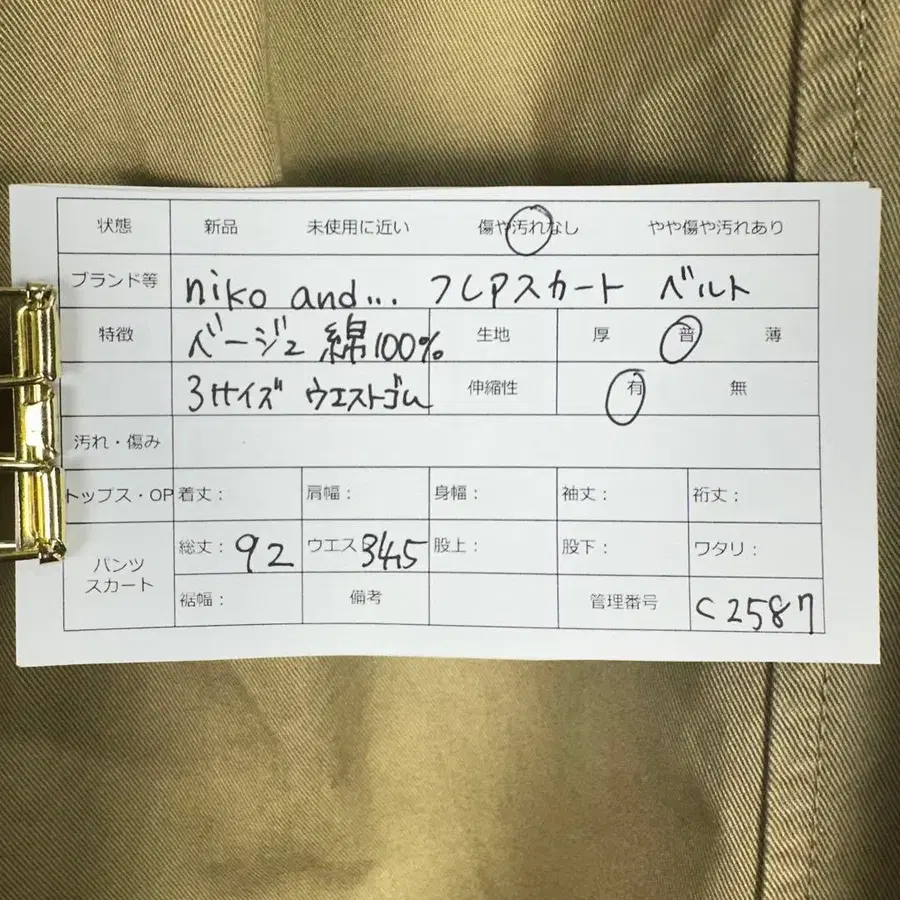 状態 新品 未使用に近い 傷や汚れなし やや傷や汚れあり
ブランド等 niko and... フレアスカート ベルト
特徴 ベージュ 綿100% 生地 厚 普 薄
3サイズ ウエストゴム 伸縮性 有 無
汚れ・傷み
トップス・OP 着丈： 肩幅： 身幅： 袖丈： 裄丈：
パンツ スカート 総丈：92 ウエス 34.5 股上： 股下： ワタリ：
裾幅： 備考 管理番号 C2587